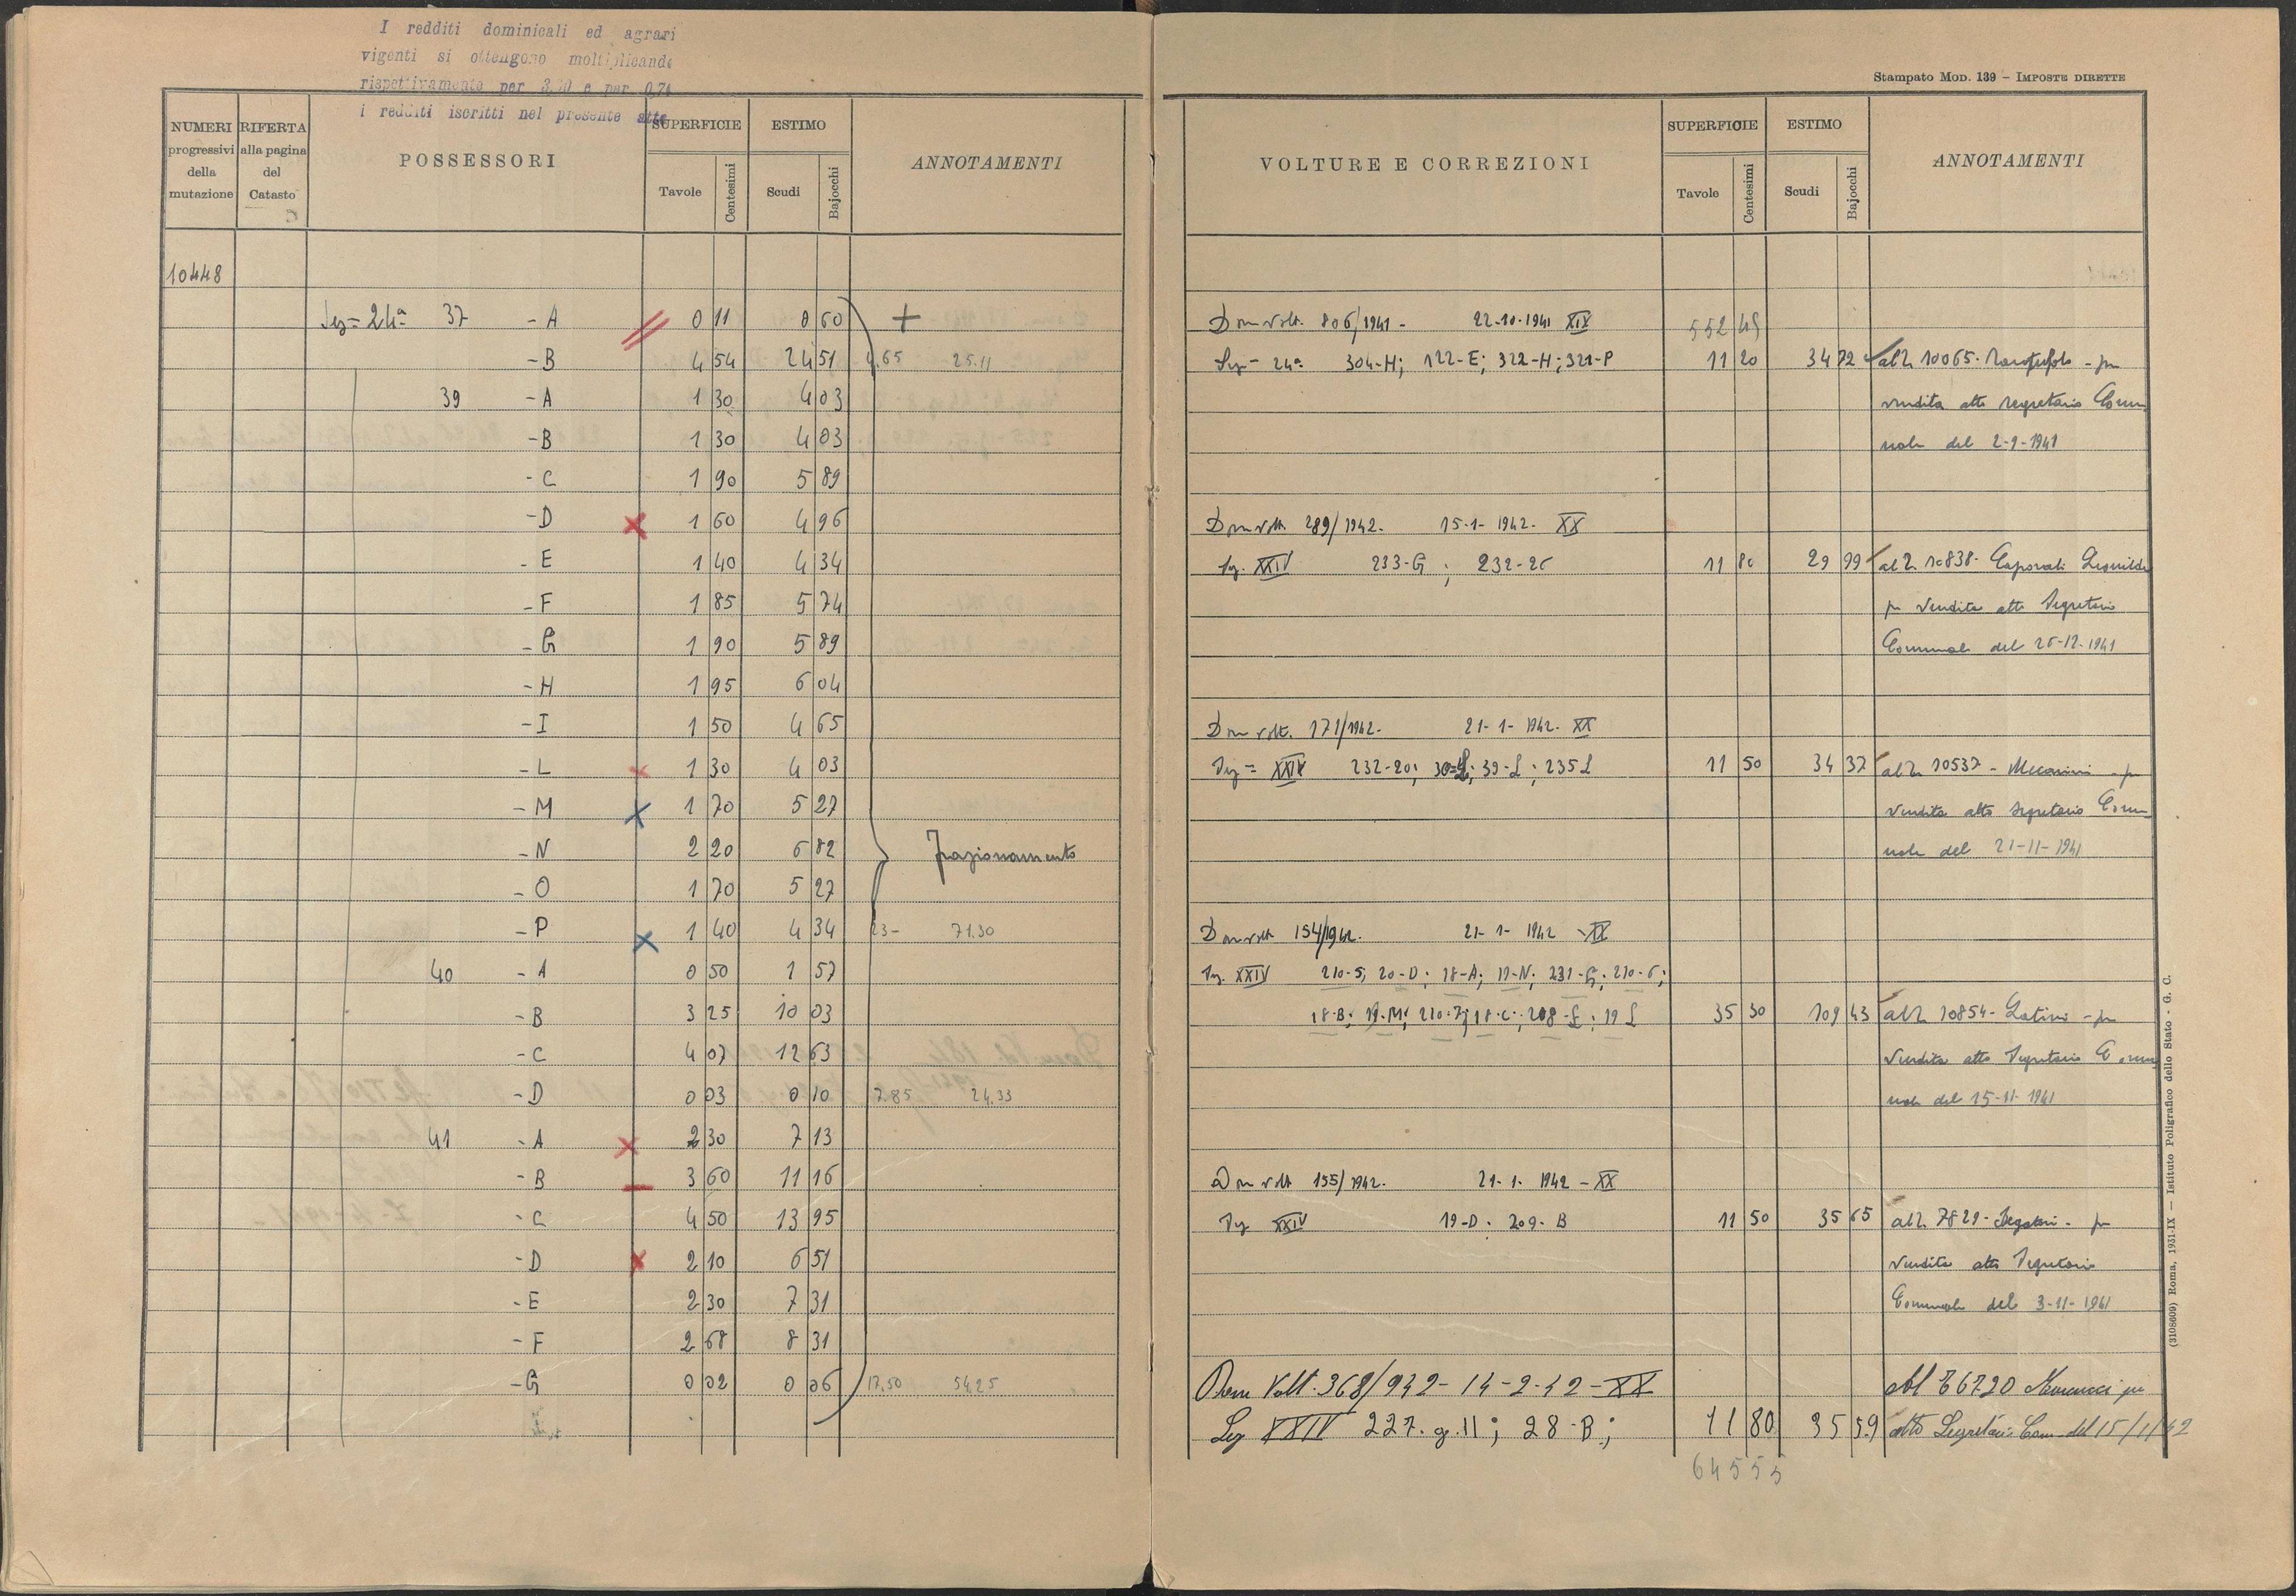 I redditi dominicali ed agrari
vigenti si ottengono moltiplicando
rispettivamente per 3,20 e per 0,74
i redditi iscritti nel presente atto
Stampato Mod. 139 – Imposte dirette
NUMERI progressivi della mutazione
RIFERTA alla pagina del Catasto
POSSESSORI
SUPERFICIE
Tavole
Centesimi
ESTIMO
Scudi
Bajocchi
ANNOTAMENTI
10448
Sez= 24ª 37 - A 0 11 0 60 +
- B 4 54 24 51 4,65 25.11
39 - A 1 30 4 03
- B 1 30 4 03
- C 1 90 5 89
- D 1 60 4 96
- E 1 40 4 34
- F 1 85 5 74
- G 1 90 5 89
- H 1 95 6 04
- I 1 50 4 65
- L 1 30 4 03
- M 1 70 5 27
- N 2 20 6 82 frazionamento
- O 1 70 5 27
- P 1 40 4 34 23- 71.30
40 - A 0 50 1 57
- B 3 25 10 03
- C 4 07 12 63
- D 0 03 0 10 7.85 24.33
41 - A 2 30 7 13
- B 3 60 11 16
- C 4 50 13 95
- D 2 10 6 51
- E 2 30 7 31
- F 2 68 8 31
- G 0 02 0 06 17,50 54,25
VOLTURE E CORREZIONI
SUPERFICIE
Tavole
Centesimi
ESTIMO
Scudi
Bajocchi
ANNOTAMENTI
Dom volt. 806/1941 - 22-10-1941 XIX 552 45
Sez- 24ª 304-H; 122-E; 322-H; 321-P 11 20 34 72 al n. 10065 - per
vendita atto segretario Comu
nale del 2-9-1941
Dom volt. 289/1942. 15-1-1942. XX
Sez. XXIV 233-G; 232-26 11 80 29 99 al n. 10838- Caporali
per vendita atto Segretario
Comunale del 26-12-1941
Dom volt. 171/1942. 21-1-1942. XX
Sez= XXIV 232-20; 39-L; 235 L 11 50 34 37 al n. 10537 - per
vendita atto segretario Comu
nale del 21-11-1941
Dom volt 154/1942. 21-1-1942 -XX
Sez. XXIV 210-5; 20-D; 18-A; 19-N; 231-G; 210-6;
18-B; 19-M; 210-7; 18-C; 208-L; 19 L 35 30 109 43 al n. 10854- Latini - per
vendita atto Segretario Comu
nale del 15-11-1941
Dom volt 155/1942. 21-1-1942 -XX
Sez XXIV 19-D. 209-B 11 50 35 65 al n. 7829 - per
vendita atto Segretario
Comunale del 3-11-1941
Dom Volt. 368/942- 14-2-42 - XX per
Sez XXIV 227. g.11; 28-B; 11 80 35 59 atto Segretario Com. del 15/1/42
645 55
(3108609) Roma, 1931-IX — Istituto Poligrafico dello Stato - G. C.